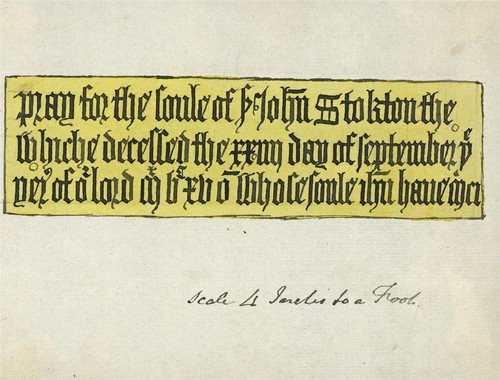 pray for the soule of Sʳ John Stokton the
whiche decessed the xxiiii day of september yᵉ
yerˢ of oʳ lord Mˡ vᶜ xv oⁿ whose soule ihu haue mci
scale 4 Inches to a Foot